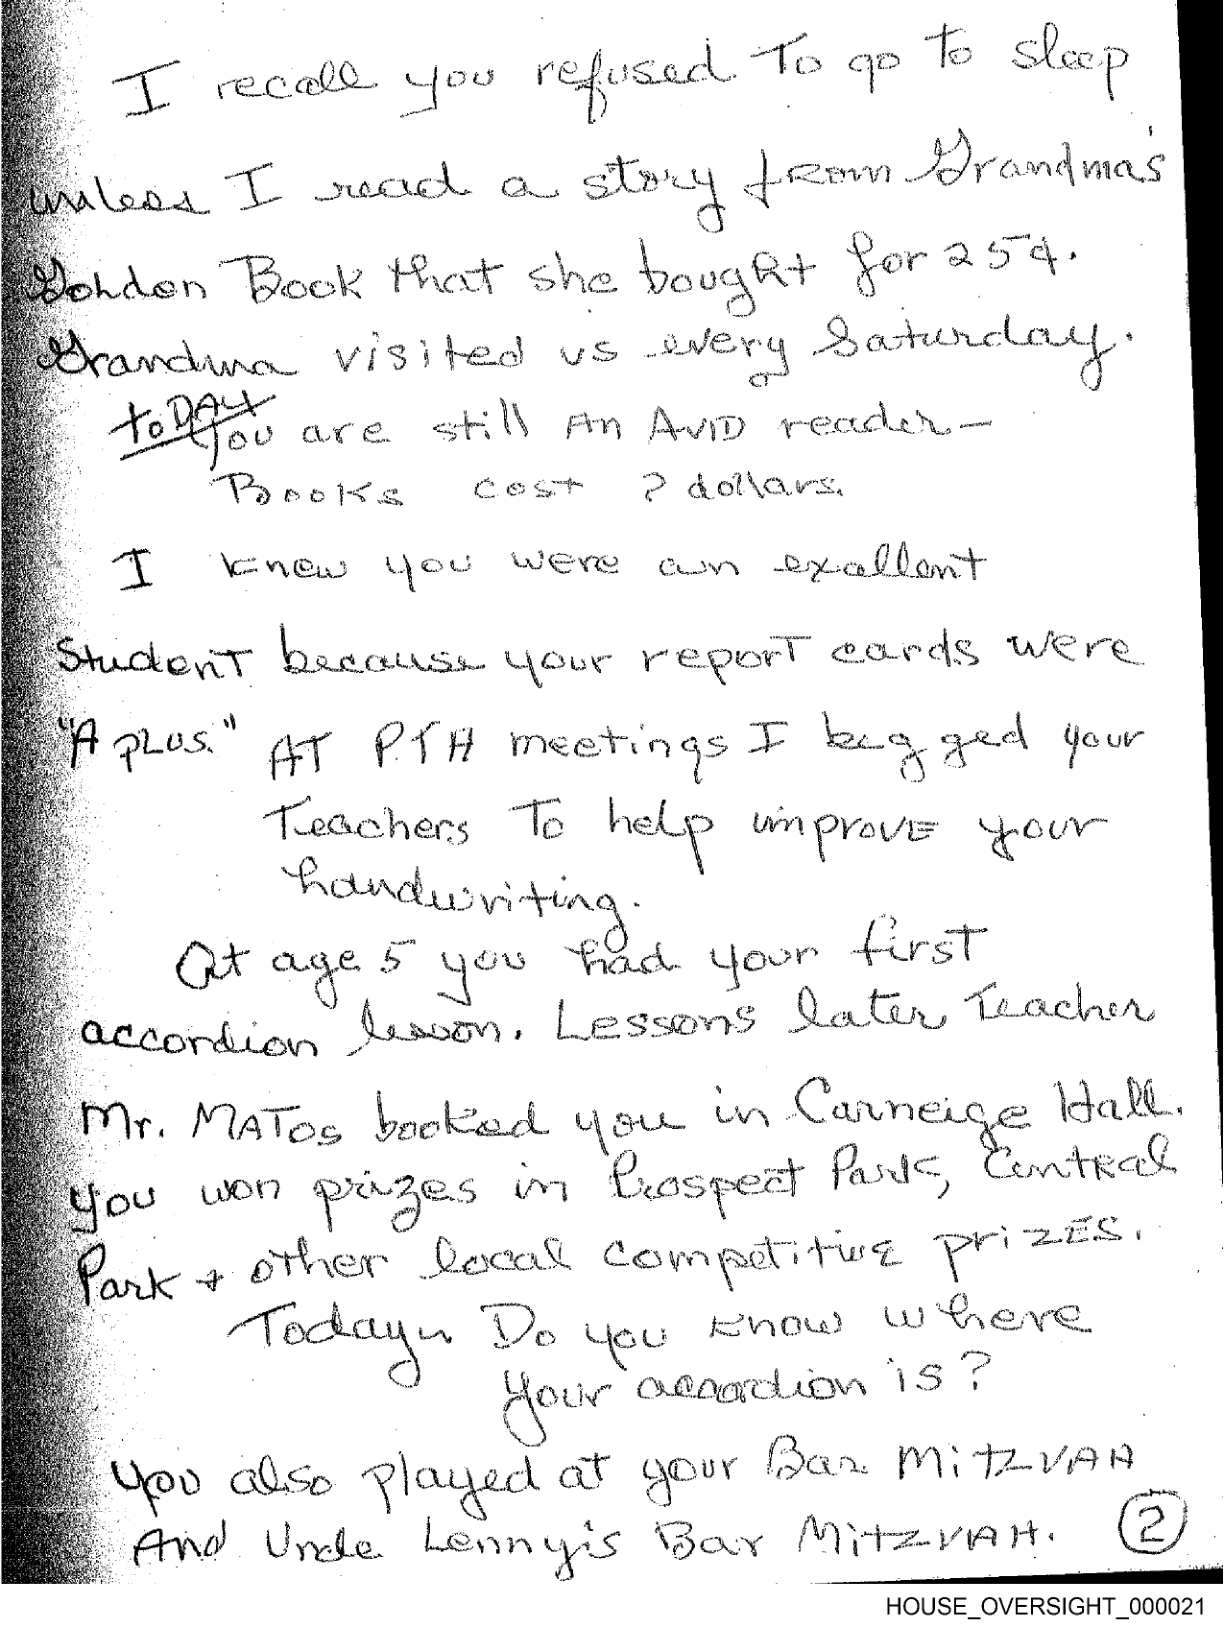 I recall you refused to go to sleep
unless I read a story from Grandma's
Golden Book that she bought for 25¢.
Grandma visited us every Saturday.
toDAY
You are still An AVID reader—
Books cost ? dollars.
I knew you were an exallent
Student because your report cards were
"A pLUS." AT PTA meetings I begged your
Teachers To help improve your
handwriting.
At age 5 you had your first
accordion lesson. Lessons later Teacher
Mr. MATOS booked you in Carneige Hall.
You won prizes in Prospect Park, Central
Park + other local competitive prizes.
Today Do you know where
your accordion is?
You also played at your Bar MitzVAH
And Uncle Lenny's Bar MitzVAH. 2
HOUSE_OVERSIGHT_000021